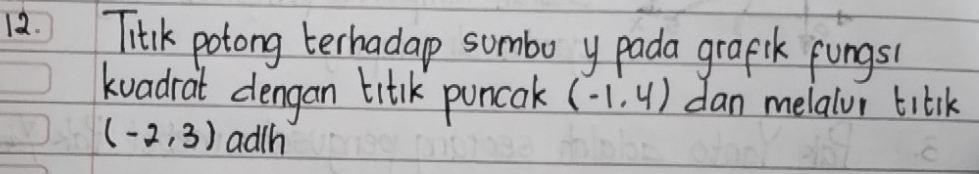 12. Titik potong terhadap sumbu y pada grafik fungsi
kuadrat dengan titik puncak (-1,4) dan melalui titik
(-2,3) adlh